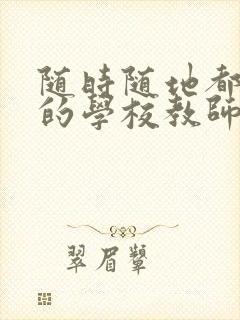 随時随地都
的學校教師
翠眉顰